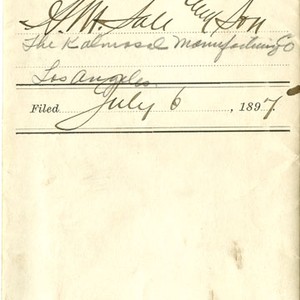 & Son
The Kalmosal Manufacturing Co
Los Angeles.
Filed July 6, 1897.